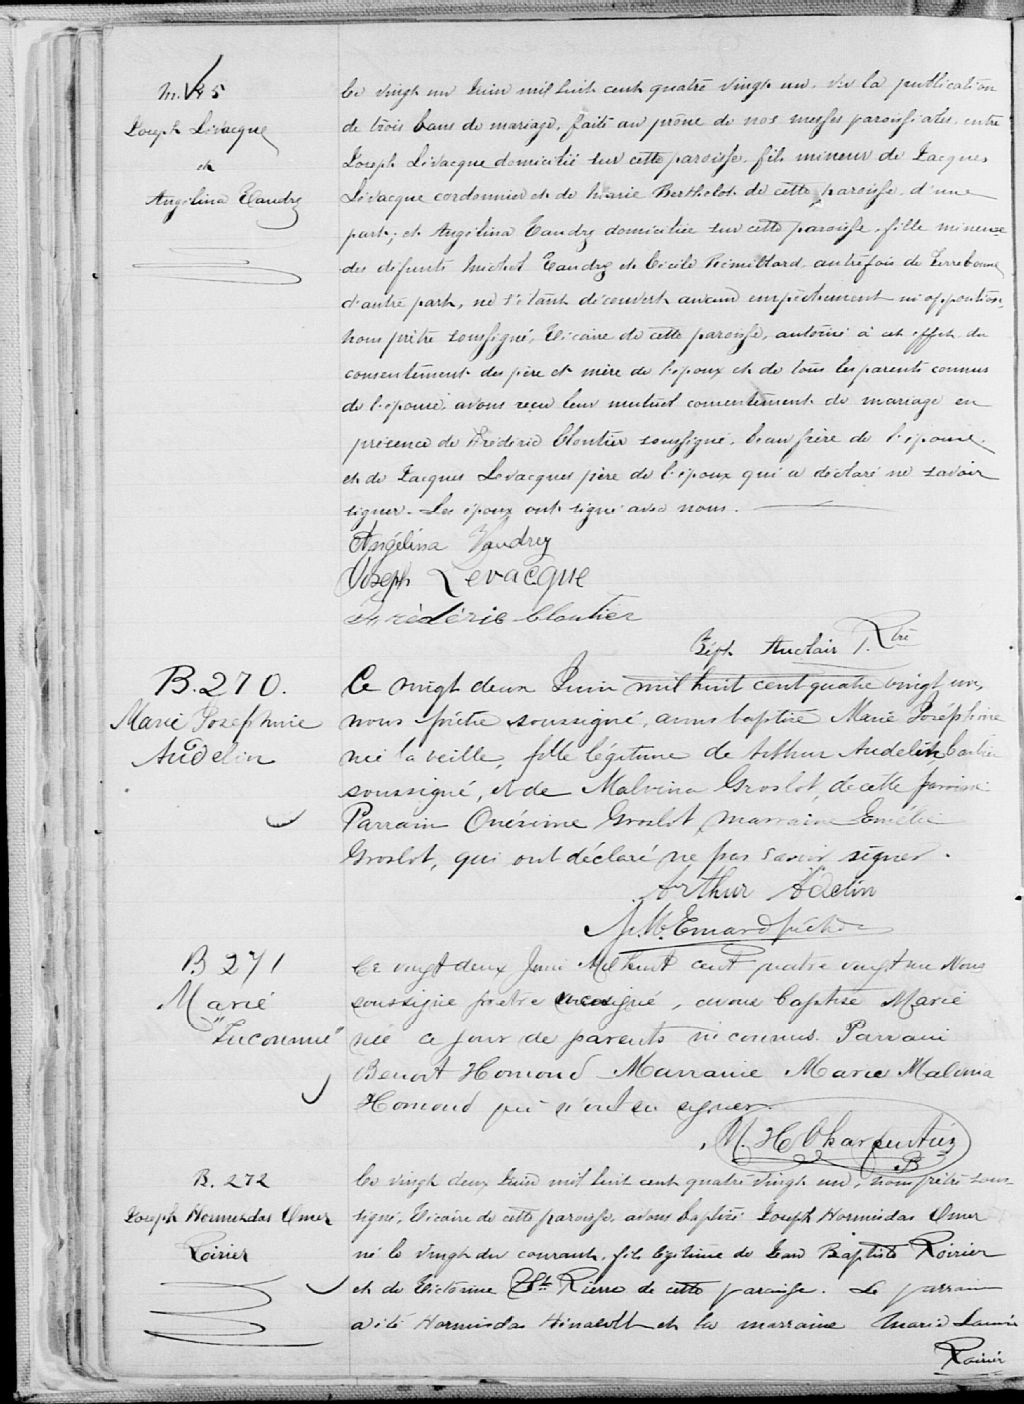 M. 45
Joseph Lévacque
et
Angélina Vaudry
Ce vingt un Juin mil huit cent quatre vingt un, vu la publication
de trois bans de mariage, faite au prône de nos messes paroissiales, entre
Joseph Lévacque domicilié sur cette paroisse, fils mineur de Jacques
Lévacque cordonnier et de Marie Berthelot de cette paroisse d'une
part; et Angélina Vaudry domiciliée sur cette paroisse, fille mineure
des défunts Michel Vaudry et Cécile Rémillard, autrefois de Terrebonne
d'autre part, ne s'étant découvert aucun empêchement ni opposition,
nous prêtre soussigné, Vicaire de cette paroisse, autorisé à cet effet, du
consentement des père et mère de l'époux et de tous les parents connus
de l'épouse, avons reçu leur mutuel consentement de mariage en
présence de Frédéric Cloutier soussigné, beau frère de l'épouse,
et de Jacques Levacques père de l'époux qui a déclaré ne savoir
signer. Les époux ont signé avec nous.
Angélina Vaudrey
Joseph Levacque
Frédéric Cloutier
Jos. Auclair Ptre
B. 270.
Marie Joséphine
Audelin
Ce vingt deux Juin mil huit cent quatre vingt un,
nous prêtre soussigné, avons baptisé Marie Joséphine
née la veille, fille légitime de Arthur Audelin
soussigné, et de Malvina Groslot, de cette paroisse
Parrain Onésime Groslot, marraine Emélie
Groslot, qui ont déclaré ne pas savoir signer.
Arthur Adelin
J. M. Emard prêtre
B 271
Marie
"Inconnue"
Ce vingt deux Juin Mil huit cent quatre vingt un Nous
soussigné prêtre soussigné, avons baptisé Marie
née ce jour de parents inconnus. Parrain
Benoit Homond Marraine Marie Malvina
Homond qui n'ont su signer.
M. H Charpentier
B. 272
Joseph Hormisdas Omer
Poirier
Ce vingt deux Juin mil huit cent quatre vingt un, nous prêtre sous-
signé, Vicaire de cette paroisse, avons baptisé Joseph Hormisdas Omer
né le vingt du courant, fils légitime de Jean Baptiste Poirier
et de Victorine St. Pierre de cette paroisse. Le parrain
a été Hormisdas Hénault et la marraine Marie Louise
Poirier